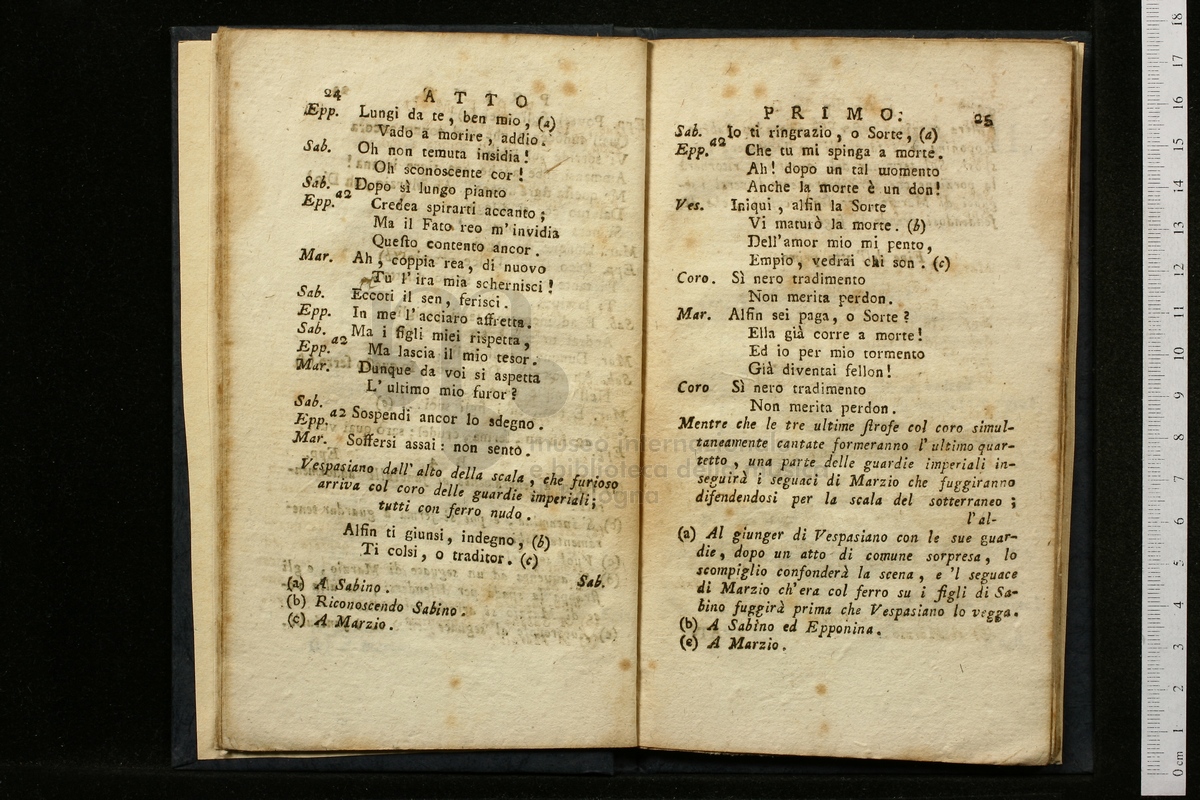 24 ATTO
Epp. Lungi da te, ben mio, (a)
Vado a morire, addio.
Sab. Oh non temuta insidia!
Oh sconoscente cor!
Sab.
Epp. a2 Dopo sì lungo pianto
Credea spirarti accanto;
Ma il Fato reo m'invidia
Questo contento ancor.
Mar. Ah, coppia rea, di nuovo
Tu l'ira mia schernisci!
Sab. Eccoti il sen, ferisci.
Epp. In me l'acciaro affretta.
Sab. Ma i figli miei rispetta,
Epp. a2 Ma lascia il mio tesor.
Mar. Dunque da voi si aspetta
L'ultimo mio furor?
Sab.
Epp. a2 Sospendi ancor lo sdegno.
Mar. Soffersi assai: non sento.
Vespasiano dall'alto della scala, che furioso
arriva col coro delle guardie imperiali;
tutti con ferro nudo.
Alfin ti giunsi, indegno, (b)
Ti colsi, o traditor. (c)
Sab.
(a) A Sabino.
(b) Riconoscendo Sabino.
(c) A Marzio.
PRIMO. 25
Sab. Io ti ringrazio, o Sorte, (a)
Epp. a2 Che tu mi spinga a morte.
Ah! dopo un tal momento
Anche la morte è un don!
Ves. Iniqui, alfin la Sorte
Vi maturò la morte. (b)
Dell'amor mio mi pento,
Empio, vedrai chi son. (c)
Coro. Sì nero tradimento
Non merita perdon.
Mar. Alfin sei paga, o Sorte?
Ella già corre a morte!
Ed io per mio tormento
Già diventai fellon!
Coro Sì nero tradimento
Non merita perdon.
Mentre che le tre ultime strofe col coro simul-
taneamente cantate formeranno l'ultimo quar-
tetto, una parte delle guardie imperiali in-
seguirà i seguaci di Marzio che fuggiranno
difendendosi per la scala del sotterraneo;
l'al-
(a) Al giunger di Vespasiano con le sue guar-
die, dopo un atto di comune sorpresa, lo
scompiglio confonderà la scena, e 'l seguace
di Marzio ch'era col ferro su i figli di Sa-
bino fuggirà prima che Vespasiano lo vegga.
(b) A Sabino ed Epponina.
(c) A Marzio.
museo internazionale
e biblioteca della musica
bologna
0 cm 1 2 3 4 5 6 7 8 9 10 11 12 13 14 15 16 17 18